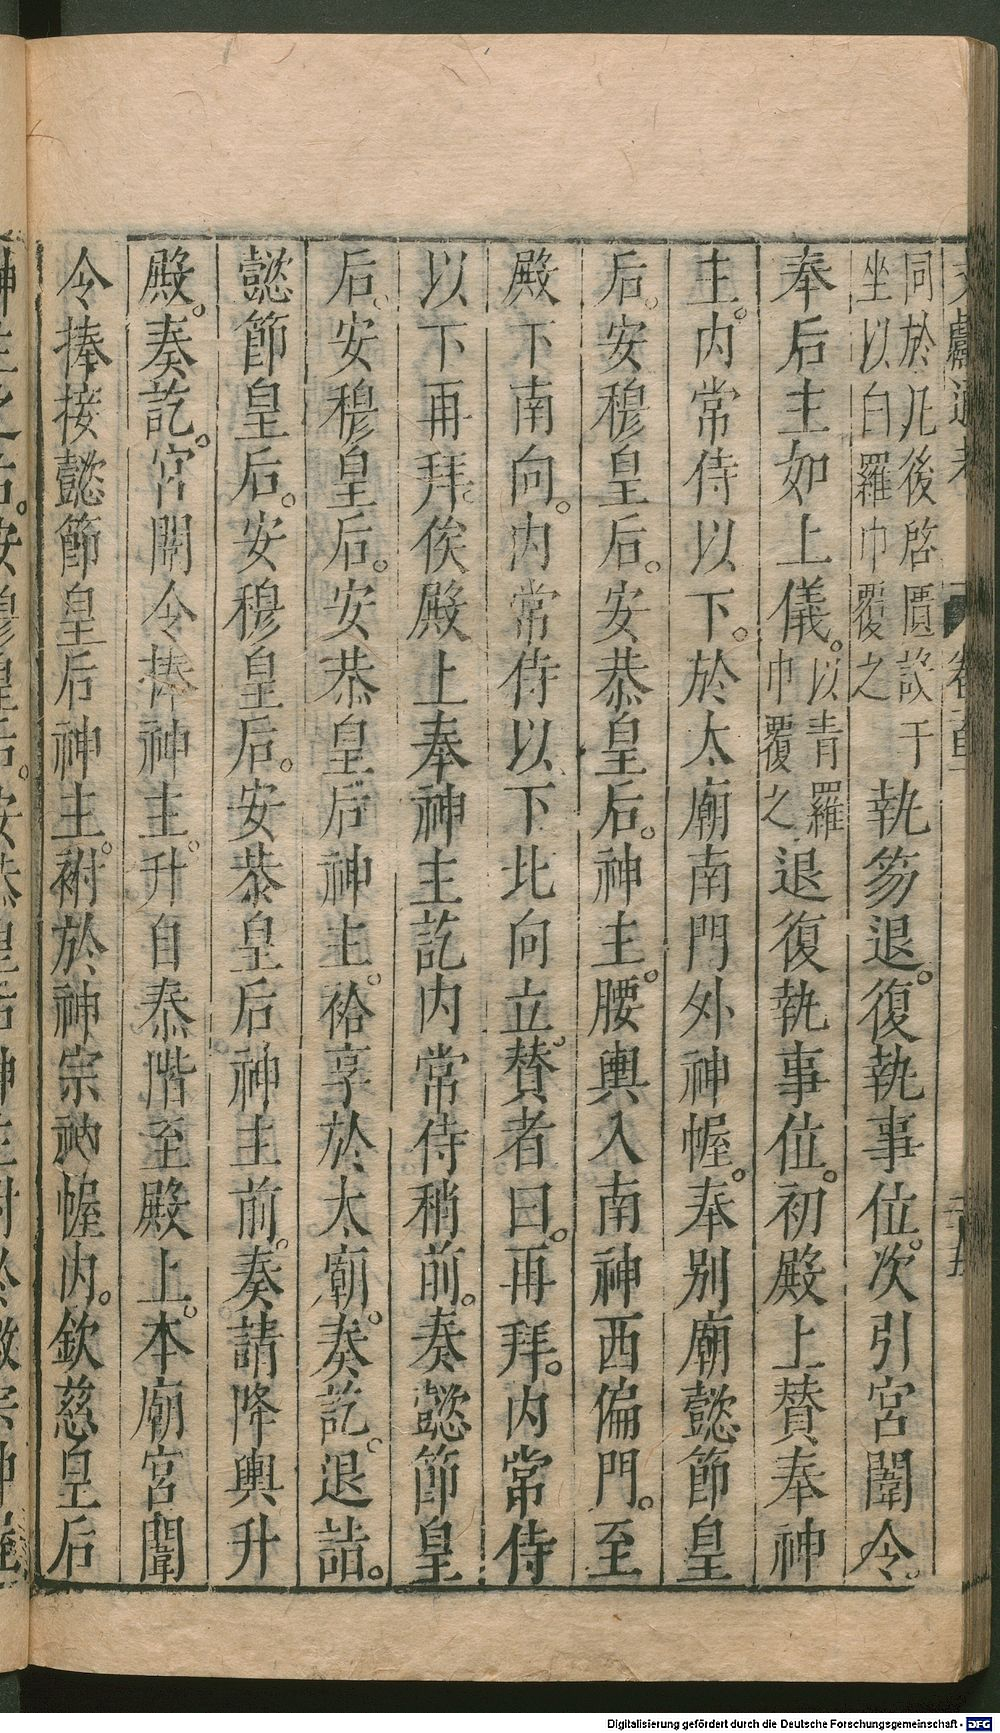 文獻通考
同於几後啓匱設于
坐以白羅巾覆之
執笏退。復執事位。次引宮闈令。
奉后主如上儀。以青羅
巾覆之
退復執事位。初殿上贊奉神
主。内常侍以下。於太廟南門外神幄。奉别廟懿節皇
后。安穆皇后。安恭皇后。神主。腰輿入南神西偏門。至
殿下南向。内常侍以下北向立。贊者曰。再拜。内常侍
以下再拜。俟殿上奉神主訖内常侍稍前。奏懿節皇
后。安穆皇后。安恭皇后神主。祫享於太廟。奏訖。退詣。
懿節皇后。安穆皇后。安恭皇后神主前。奏請降輿升
殿。奏訖。宮闈令捧神主。升自泰階至殿上。本廟宮闈
令捧接懿節皇后神主。祔於神宗祔幄内。欽慈皇后
Digitalisierung gefördert durch die Deutsche Forschungsgemeinschaft - DFG